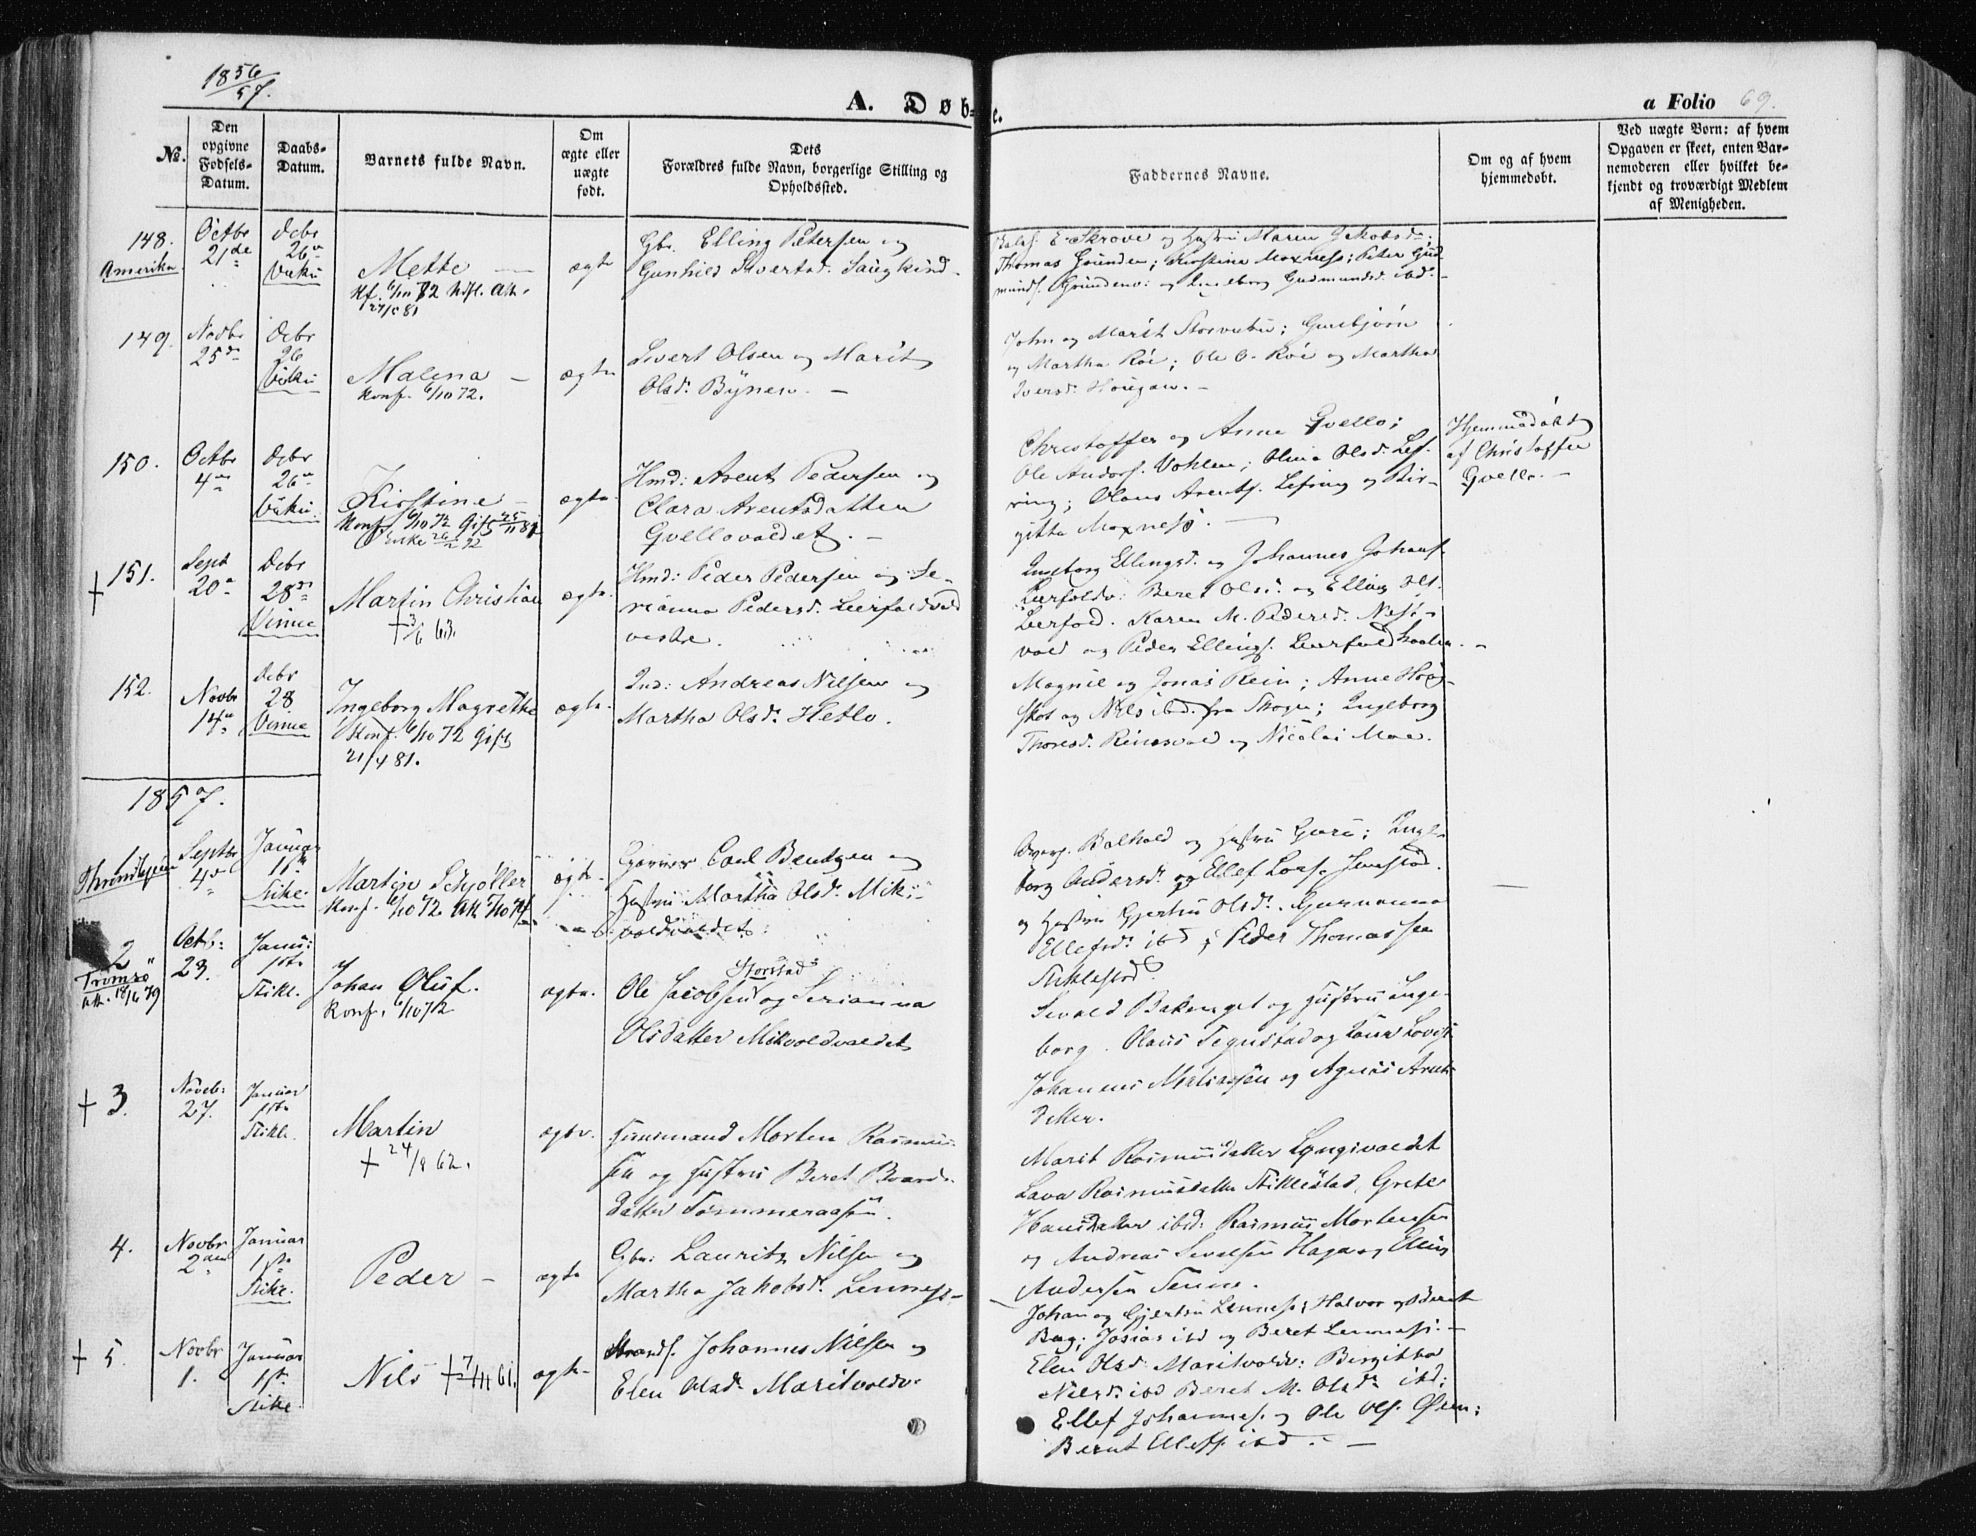 1856/57.
A. Døbte.
a Folio 69.
No.
Den opgivne Fødsels-Datum.
Daabs-Datum.
Barnets fulde Navn.
Om ægte eller uægte født.
Dets Forældres fulde Navn, borgerlige Stilling og Opholdssted.
Faddernes Navne.
Om og af hvem hjemmedøbt.
Ved uægte Børn: af hvem Opgaven er skeet, enten Barnemoderen eller hvilket bekjendt og troværdigt Medlem af Menigheden.
148.
Amerika
Octbr
21de
Debr
26
Vuku
Mette
Kf. 6/10 72
ægte
Gbr. Elling Petersen og
Gunhild Sivertsd.
E. Skrove og Hustru Maren Jakobsd.
Thomas Grunden; Kirstine Moxness; Peter Gud
munds. Grunden og Ingeborg Gudmundsd. ibd.
149.
Novbr
25
Debr
26
Vuku
Malena
Konf. 6/10 72.
ægte
Sivert Olsen og Marit
Olsd. Bÿnes
John og Marit Storvuku; Gunbjörn
og Martha Röe; Ole O. Röe og Martha
Iversd. Hougan.
150.
Octbr
4
Debr
26
Vuku.
Kirstine
Konf. 6/10 72 Gift 25/11 81
Enke 26/2 92
ægte
Hmd: Arent Pedersen og
Clara Arentsdatter
Qvellovaldet.
Christoffer og Anne Qvello;
Ole Andors. Vohlen; Olsd. Lef
ring; Olaus Arents. Lefring og Bir
gitta Moxness.
Hjemmedøbt
af Christoffer
Qvello.
† 151.
Sept
20
Debr
28
Vinne
Martin Christian
† 3/6 63.
ægte
Hmd: Peder Pedersen og Se-
rianna Pedersd. Leirfaldvald
vestre.
Ingeborg Ellingsd. og Johannes Johans.
Leerfaldv: Beret Olsd. og Elling Ols.
Leerfald. Karen M. Pedersd. Ness
vald og Peder Ellings. Leerfald
152.
Novbr
14
Debr
28
Vinne
Ingeborg Magrethe
Konf. 6/10 72 Gift
21/4 81.
ægte
Ind: Andreas Nilsen og
Martha Olsd. Hetlo.
Magnil og Jonas Rein; Anne Hög
skot og Nils ibd. fra Skogn; Ingeborg
Thoresd. Reinsvald og Nicolai Moe.
1857.
1
Septbr
4
Januar
1ste
Stikl.
Martin Schjöller
Konf. 6/10 72
ægte
Garver Carl Bentzen og
Hustru Martha Olsd. Mik
voldvaldet.
Balhald og Hustru Guru; Inge
borg Andersd. og Ellef Lars.
og Hustru Gjertru Olsd. Gurianna
Ellefsd. ibd; Peder Thomassen
Stiklestad
2
Tromsö
att. 18/6 79
Octb:
23.
Janu:
1ste
Stikl.
Johan Oluf.
Konf. 6/10 72
ægte.
Storstad
Ole Jacobsen og Serianna
Olsdatter Mikvoldvaldet
Sivald Bakenget og Hustru Inge
borg. Olaus Tegnstad og
Johannes Mortinssen og Agnes Arnts
datter.
† 3.
Noveb:
27.
Januar
1ste
Stikl.
Martin
† 24/8 62.
ægte.
Huusmand Morten Rasmus
sen og Hustru Beret Baards
datter Tömmeraasen.
Marit Rasmusdatter Lyngsvaldet
Lava Rasmusdatter Stiklestad, Grete
Hansdatter ibd: Rasmus Mortensen
og Andreas Sevalsen Haga og Elling
Andersen
4.
Novbr
2den
Januar
1ste
Stikl.
Peder
ægte
Gbr: Lauritz Nilsen og
Martha Jakobsd. Lenness
Johan og Gjertru Lenness; Halvor og Beret
Bag; Josias ibd og Beret Lenness.
† 5.
Novbr
1.
Januar
1ste
Stikl.
Nils † 7/11 61.
ægte
Johannes Nilsen og
Elen Olsd. Maritvaldv.
Elen Olsd. Maritvaldv: Birgitta
Nilsd. ibd Beret M. Olsd. ibd;
Ellef Johannes. og Ole Ols. Öen;
Bernt Ellefs. ibd.